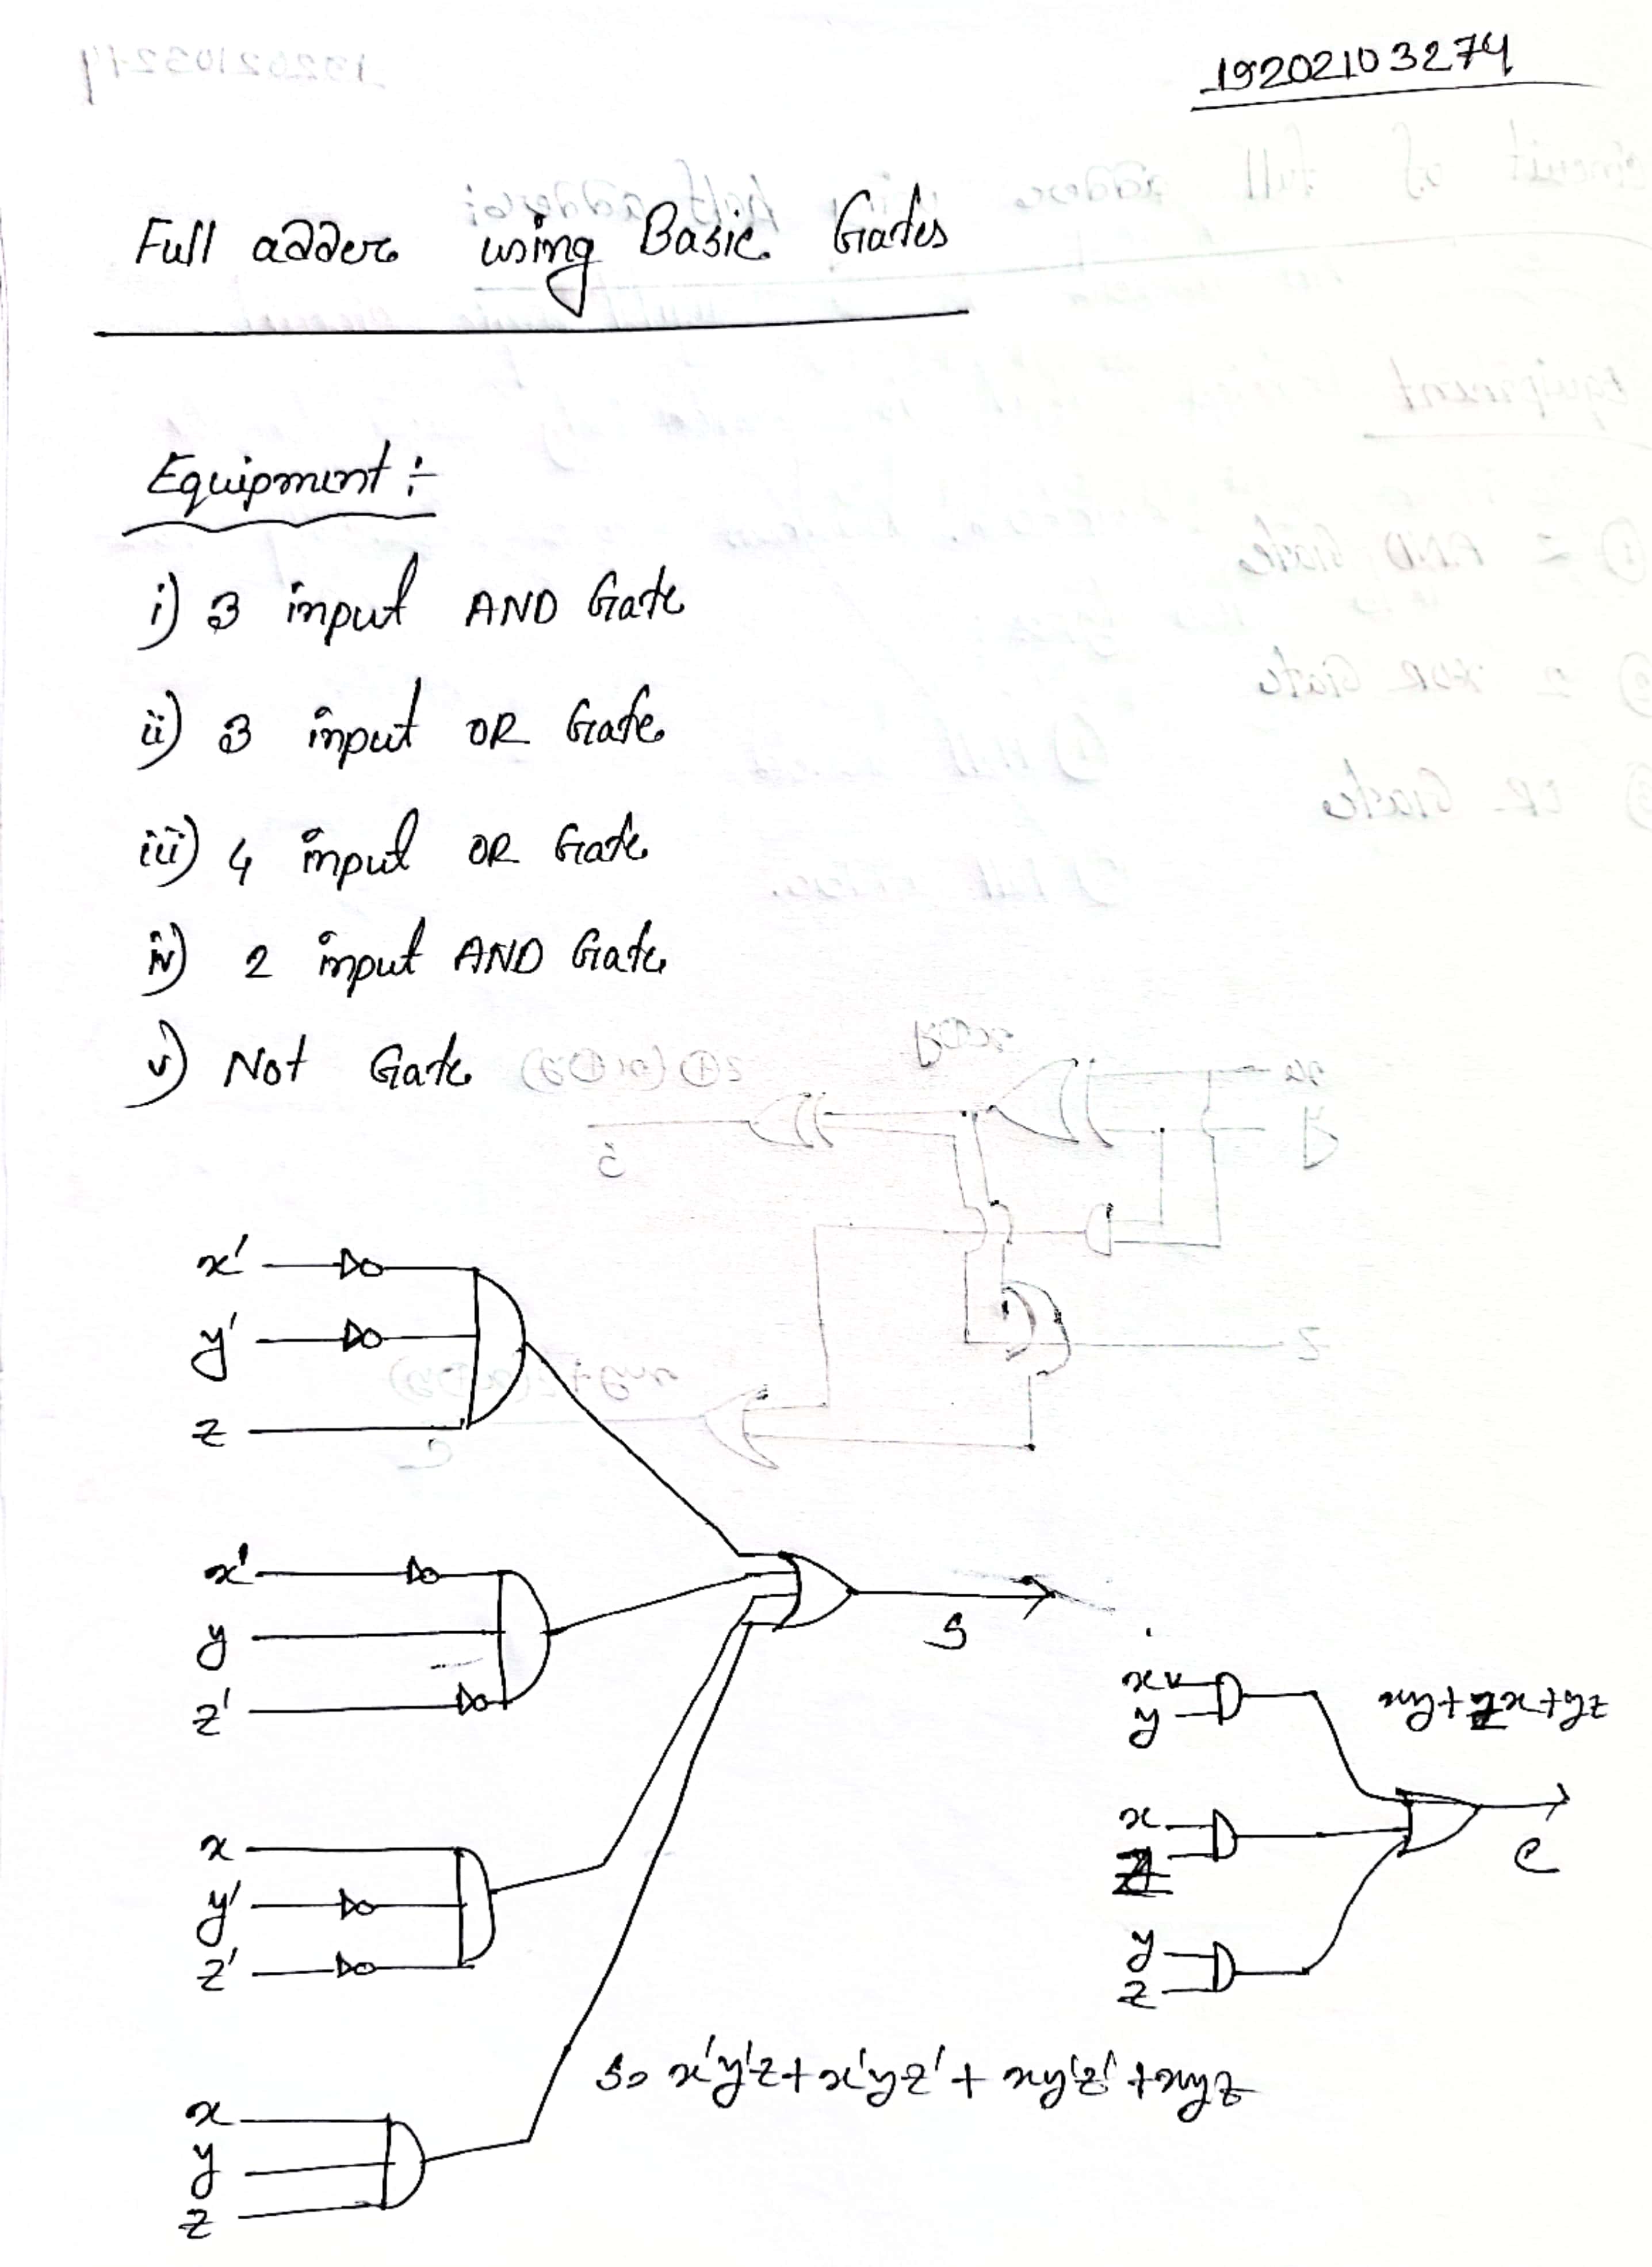 19202103274
Full adder using Basic Gates
Equipment :-
i) 3 input AND Gate
ii) 3 input OR Gate
iii) 4 input OR Gate
iv) 2 input AND Gate
v) Not Gate
x'
y'
z
x'
y
z'
S
x
y
xy+zx+yz
x
z
C
y
z
x
y'
z'
S= x'y'z+x'yz'+xy'z'+xyz
x
y
z